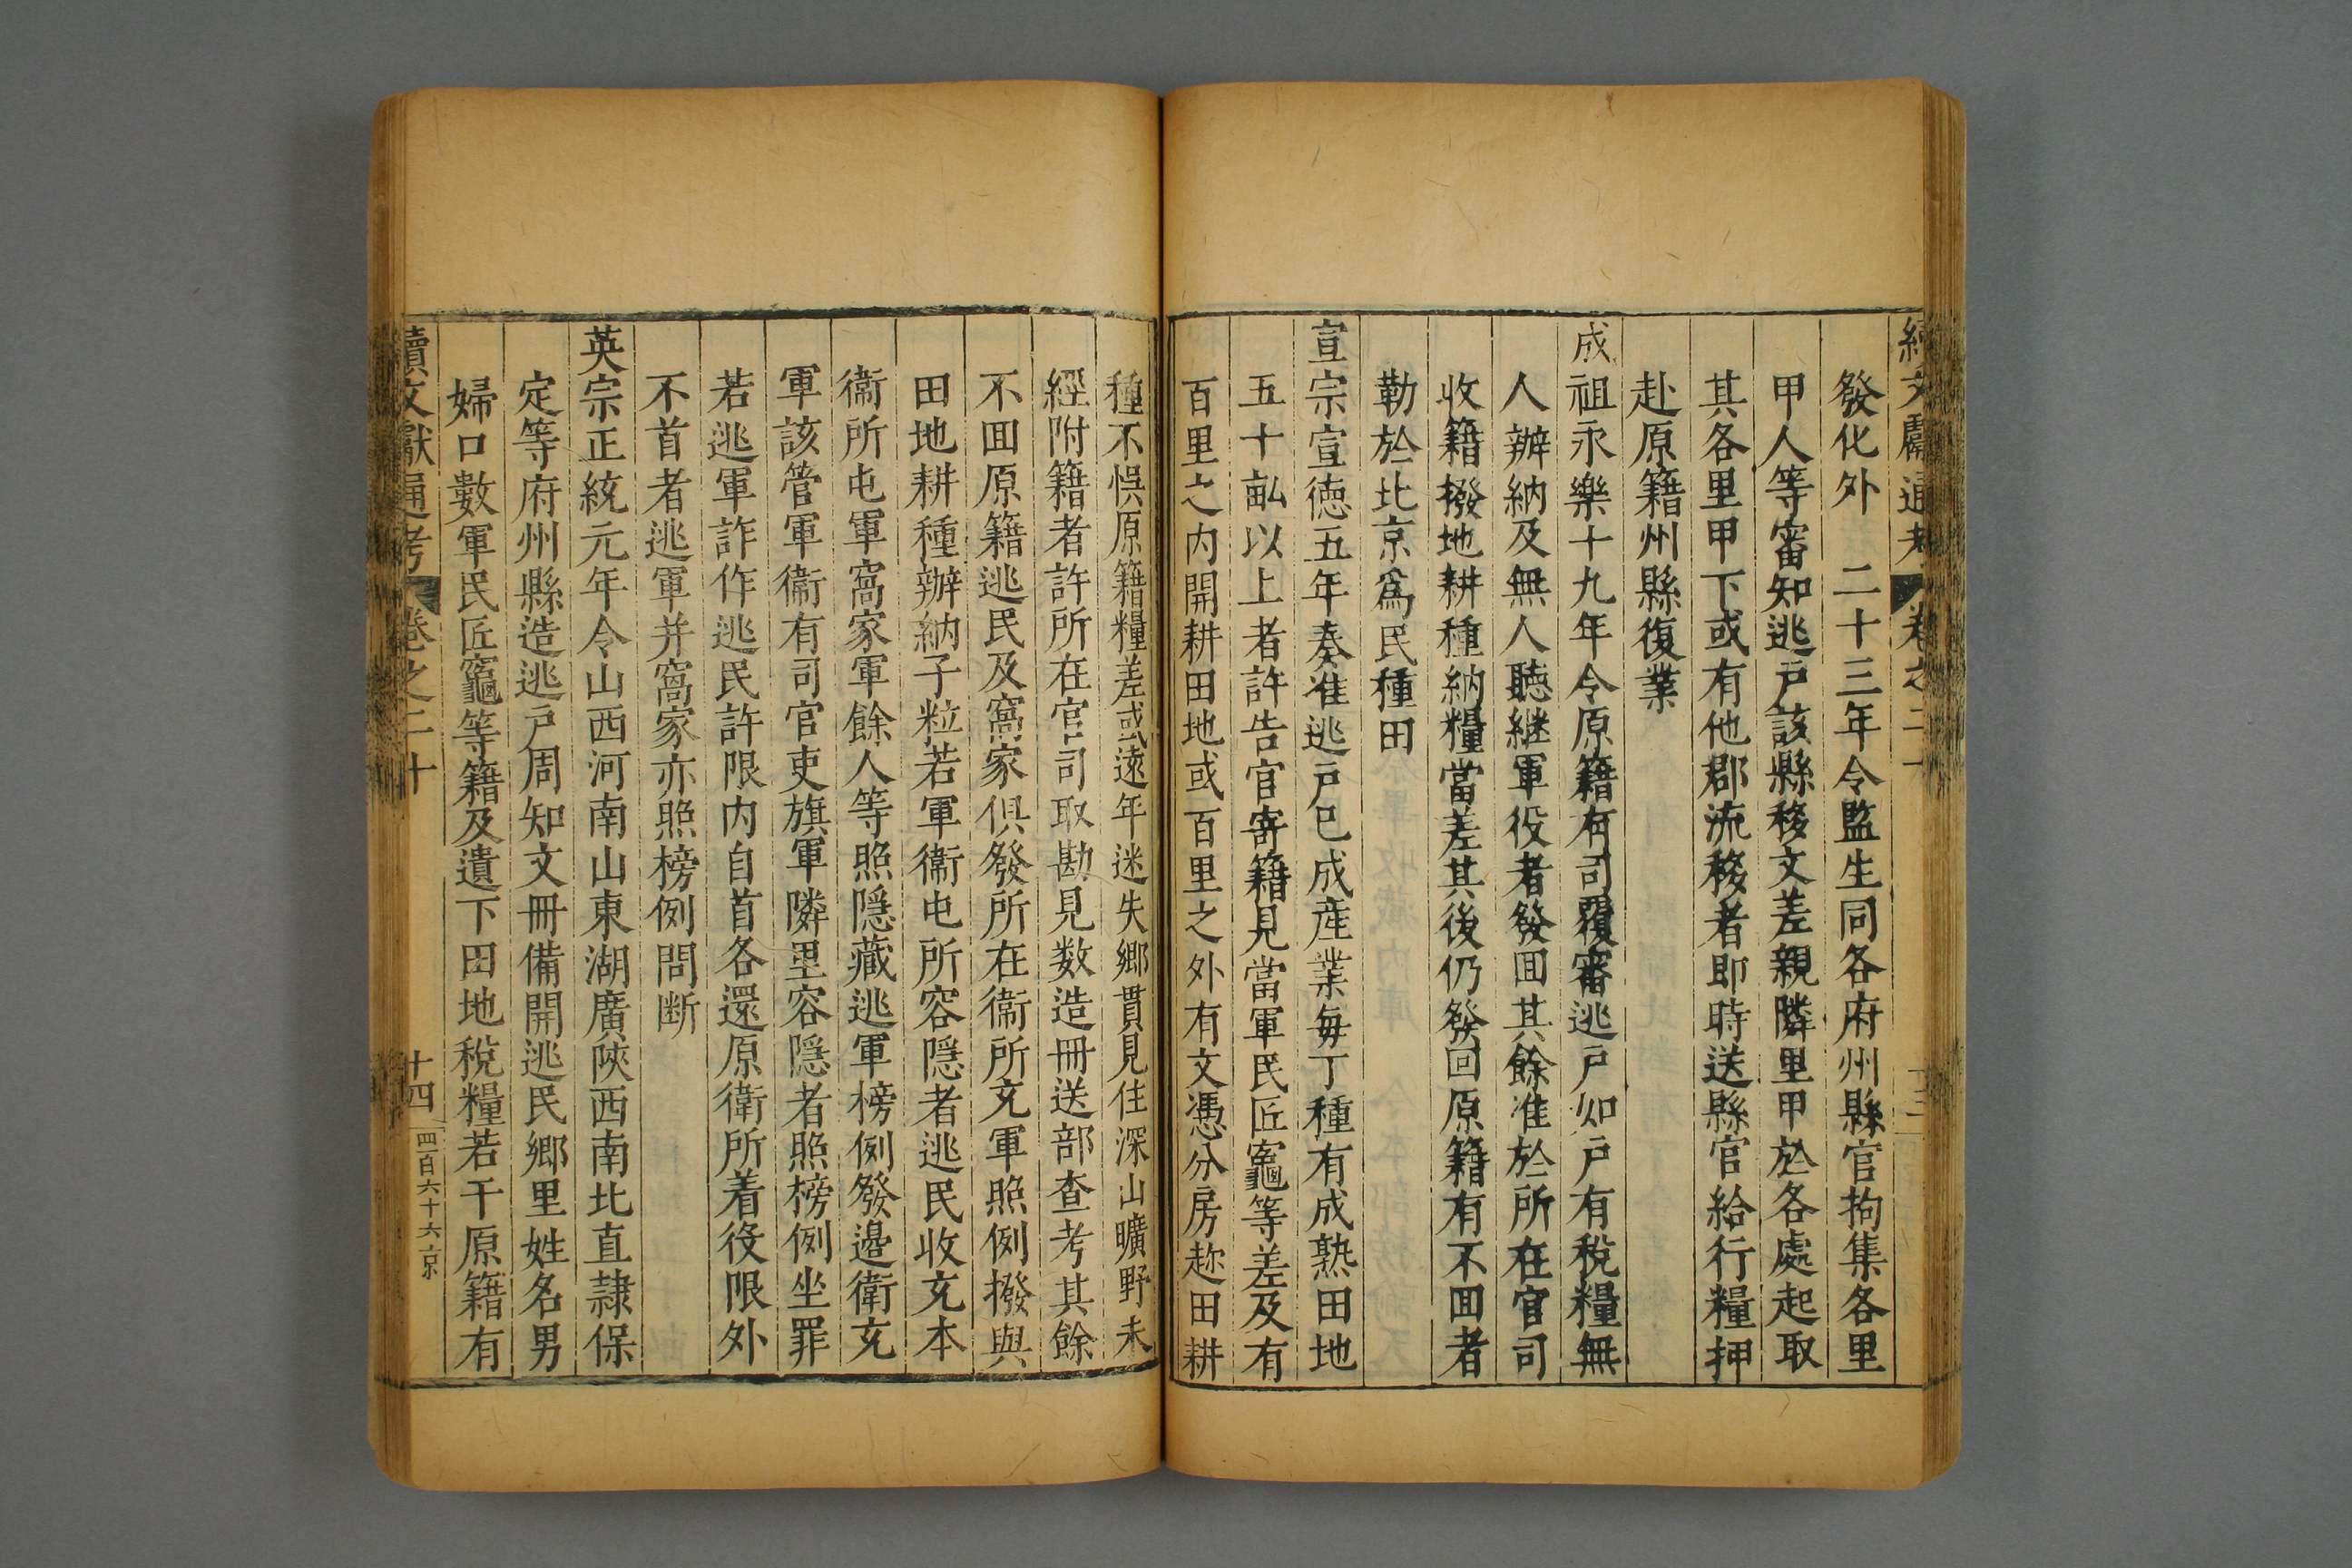 續文獻通考 卷之二十
發化外 二十三年令監生同各府州縣官拘集各里
甲人等審知逃戶該縣移文差親隣里甲於各處起取
其各里甲下或有他郡流移者即時送縣官給行糧押
赴原籍州縣復業
成祖永樂十九年令原籍有司覆審逃戶如戶有稅糧無
人辦納及無人聽継軍役者發囬其餘准於所在官司
收籍撥地耕種納糧當差其後仍發回原籍有不囬者
勒於北京爲民種田
宣宗宣徳五年奏准逃戶已成產業每丁種有成熟田地
五十畝以上者許告官寄籍見當軍民匠竈等差及有
百里之内開耕田地或百里之外有文憑分房趂田耕
種不悞原籍糧差或遠年迷失鄉貫見住深山曠野未
經附籍者許所在官司取勘見数造冊送部查考其餘
不囬原籍逃民及窩家俱發所在衞所充軍照例撥與
田地耕種辦納子粒若軍衞屯所容隠者逃民收充本
衞所屯軍窩家軍餘人等照隠藏逃軍榜例發邉衛充
軍該管軍衞有司官吏旗軍隣里容隠者照榜例坐罪
若逃軍詐作逃民許限内自首各還原衛所着役限外
不首者逃軍并窩家亦照榜例問断
英宗正統元年令山西河南山東湖廣陝西南北直隷保
定等府州縣造逃戶周知文冊備開逃民鄉里姓名男
婦口數軍民匠竈等籍及遺下田地稅糧若干原籍有
續文獻通考 卷之二十 十四 四百六十六 京